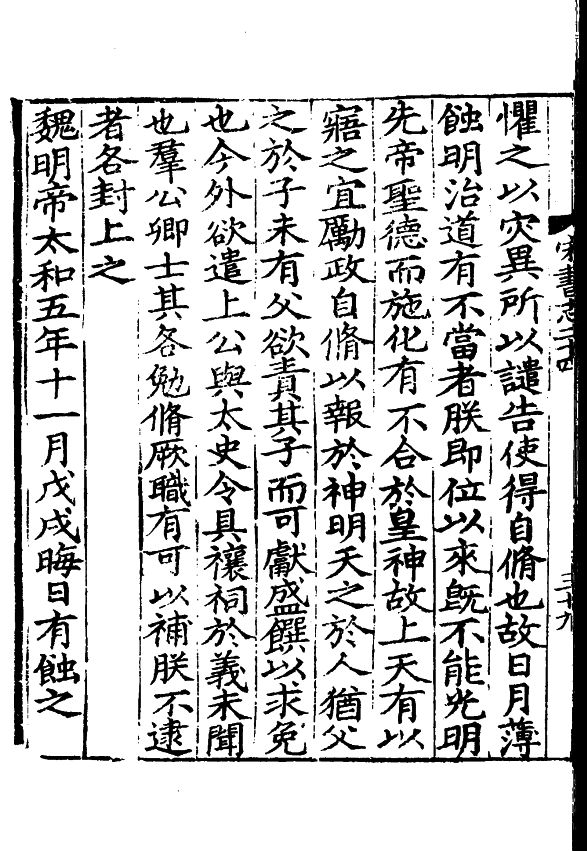 懼之以灾異所以譴告使得自脩也故日月薄
蝕明治道有不當者朕即位以來既不能光明
先帝聖德而施化有不合於皇神故上天有以
寤之宜勵政自脩以報於神明天之於人猶父
之於子未有父欲責其子而可獻盛饌以求免
也今外欲遣上公與太史令具禳祠於義未聞
也羣公卿士其各勉脩厥職有可以補朕不逮
者各封上之
魏明帝太和五年十一月戊戌晦日有蝕之